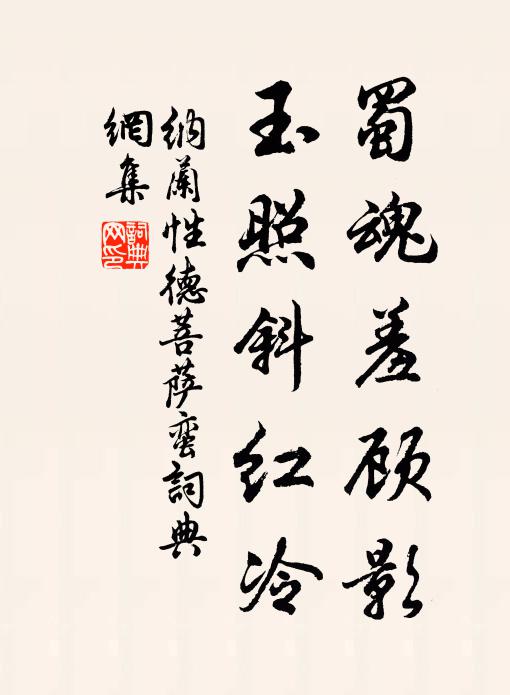 蜀魂羞顾影
玉照斜红冷
纳兰性德菩萨蛮詞典
網集
詞典网印